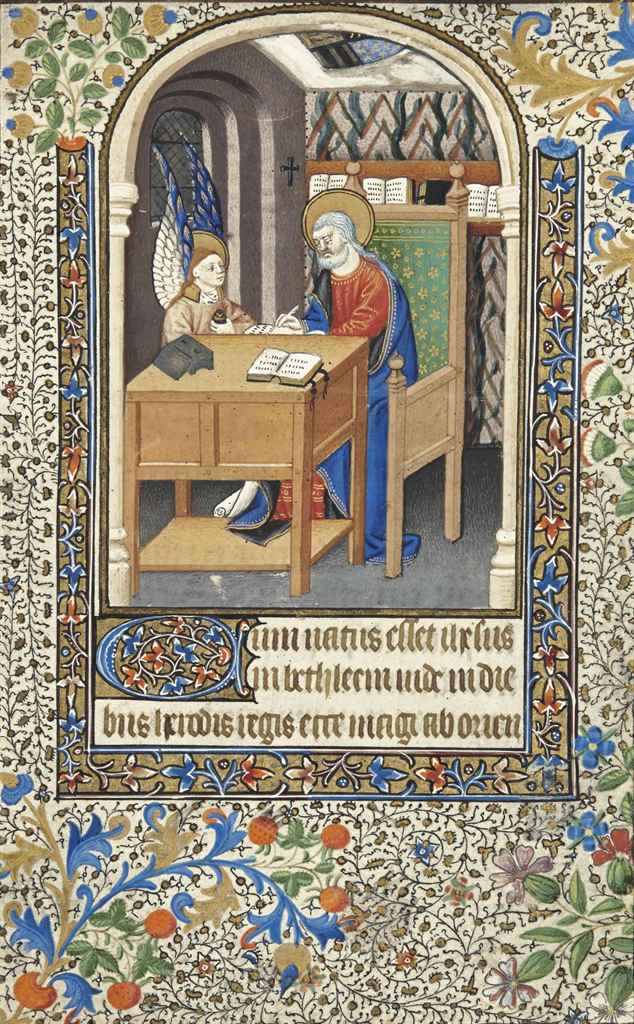 Cum natus esset ihesus
in bethleem iude in die
bus herodis regis ecce magi ab orien